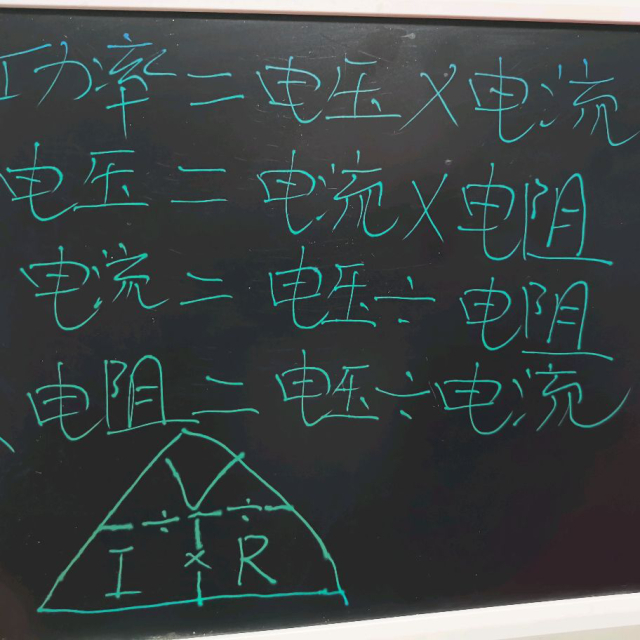 功率=电压×电流
电压=电流×电阻
电流=电压÷电阻
电阻=电压÷电流
V
÷ ÷
I × R